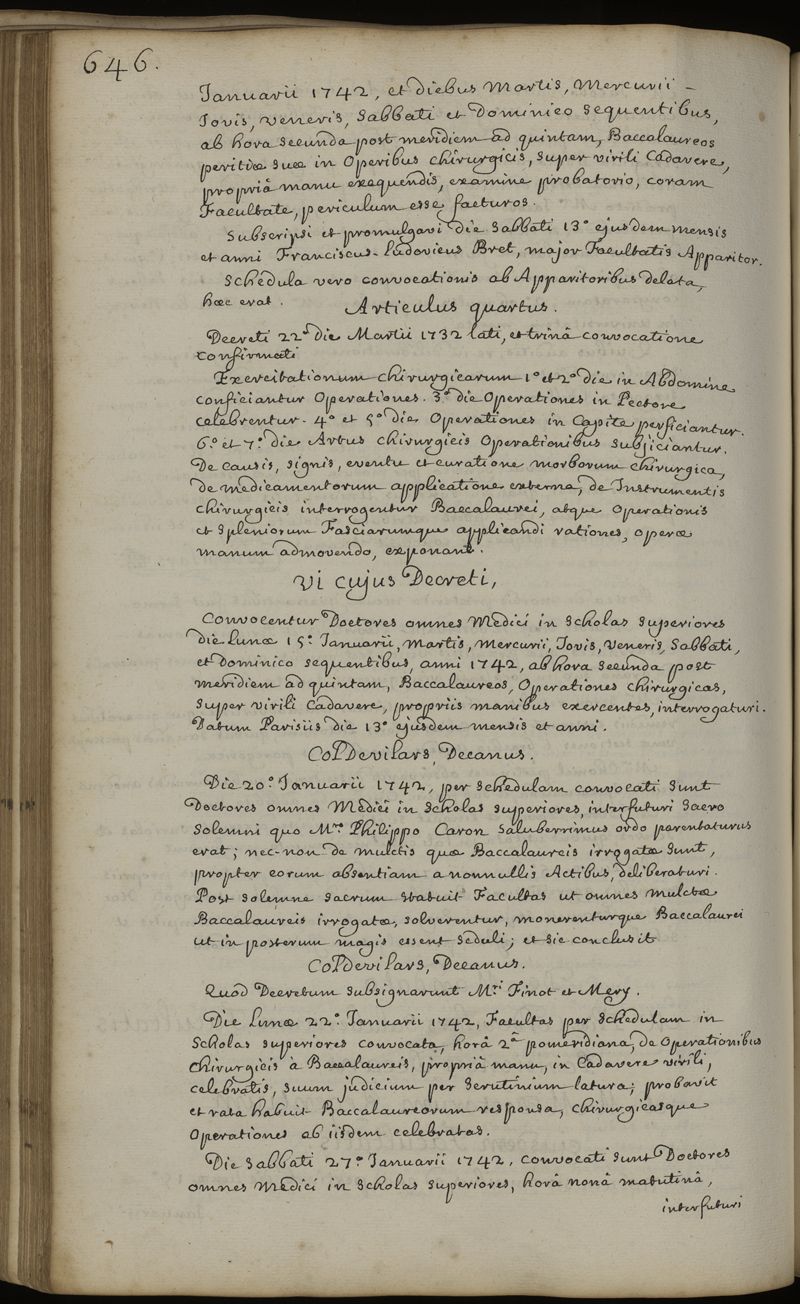 646.
Januarii 1742, et diebus Martis, Mercurii -
Jovis, Veneris, Sabbati et Dominico sequentibus,
ab hora secunda post meridiem ad quintam, Baccalaureos
peritiæ suæ in Operibus chirurgicis, super virili Cadavere,
propriâ manu exequendis, examine probatorio, coram
Facultate, periculum esse facturos.
Subscripsi et promulgavi die Sabbati 13ᵃ ejusdem mensis
et anni Franciscus-Ludovicus Bret, major Facultatis Apparitor.
Schedula vero convocationis ab Apparitoribus delata,
hæc erat.
Articulus quartus.
Decreti 22ᵃ die Martii 1732 lati, et trinâ convocatione
confirmati
Exercitationum chirurgicarum 1ᵃ et 2ᵃ die in Abdomine
conficiantur Operationes. 3ᵃ die Operationes in Pectore
celebrentur. 4ᵃ et 5ᵃ die Operationes in Capite perficiantur.
6ᵃ et 7ᵃ die Artus chirurgicis Operationibus subjiciantur.
De causis, signis, eventu et curatione morborum chirurgica,
de medicamentorum applicatione externa, de Instrumentis
chirurgicis interrogentur Baccalaurei, atque Operationis
et Spleniorum Fasciarumque applicandi rationes, operæ
manum admovendo, exponant.
Vi cujus Decreti,
Convocentur Doctores omnes Medici in Scholas superiores
die Lunæ 15ᵃ Januarii, Martis, Mercurii, Jovis, Veneris, Sabbati,
et Dominico sequentibus, anni 1742, ab hora secunda post
meridiem ad quintam, Baccalaureos, Operationes chirurgicas,
super virili Cadavere, propriis manibus exercentes, interrogaturi.
Datum Parisiis die 13ᵃ ejusdem mensis et anni.
ColDevilars, Decanus.
Die 20ᵃ Januarii 1742, per schedulam convocati sunt
Doctores omnes Medici in Scholas superiores, interfuturi Sacro
solemni quo Mʳᵒ Philippo Caron saluberrimus ordo parentaturus
erat; nec-non de mulctis quæ Baccalaureis irrogatæ sunt,
propter eorum absentiam a nonnullis Actibus, deliberaturi.
Post solemne sacrum statuit Facultas ut omnes mulctæ
Baccalaureis irrogatæ, solverentur, monerenturque Baccalaurei
ut in posterum magis essent seduli; et sic conclusit
ColDevilars, Decanus.
Quod Decretum subsignarunt Mʳⁱ Finot et Mery.
Die Lunæ 22ᵃ Januarii 1742, Facultas per schedulam in
Scholas superiores convocata, horâ 2ᵃ pomeridiana, de Operationibus
chirurgicis à Baccalaureis, propriâ manu, in Cadavere virili,
celebratis, suum judicium per scrutinium latura; probavit
et rata habuit Baccalaureorum responsa, chirurgicasque
Operationes ab iisdem celebratas.
Die Sabbati 27ᵃ Januarii 1742, convocati sunt Doctores
omnes Medici in Scholas superiores, horâ nonâ matutinâ,
interfuturi